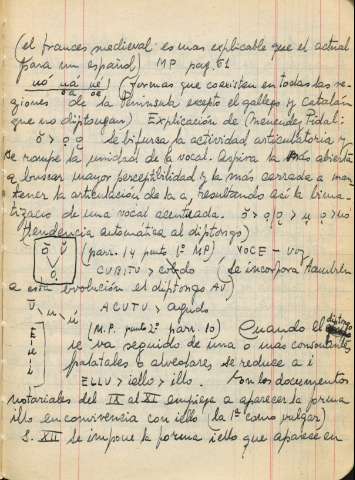 (el frances medieval es mas explicable que el actual
para un español) MP pag. 61
uó uá ué (Formas que coexisten en todas las re-
oa oe
giones de la Peninsula excepto el gallego y catalán
que no diptongan) Explicación de (Menendez Pidal:
ŏ > ọ ǫ se bifurca la actividad articulatoria y
se rompe la unidad de la vocal. Aspira la más abierta
a buscar mayor perceptibilidad y la más cerrada a man-
tener la articulación de la o, resultando así la
de una vocal acentuada. ŏ > ọ ǫ > u ǫ > uo
(tendencia automatica al diptongo)
ō ŭ (parr. 14 punto 1º MP) VOCE - voz
ọ CUBITU > codo (Se incorpora tambien
a esta evolución el diptongo AU)
Ū - u - ú ACUTU > agudo
(M.P. punto 2º parr. 10) Cuando el diptongo
E se va seguido de una o mas consonantes
palatales o alveolares, se reduce a i
ELLU > iello > illo. En los documentos
notariales del IX al XI empieza a aparecer la forma
illo en convivencia con iello (la 1ª como vulgar)
S. XII se impone la forma iello que aparece en